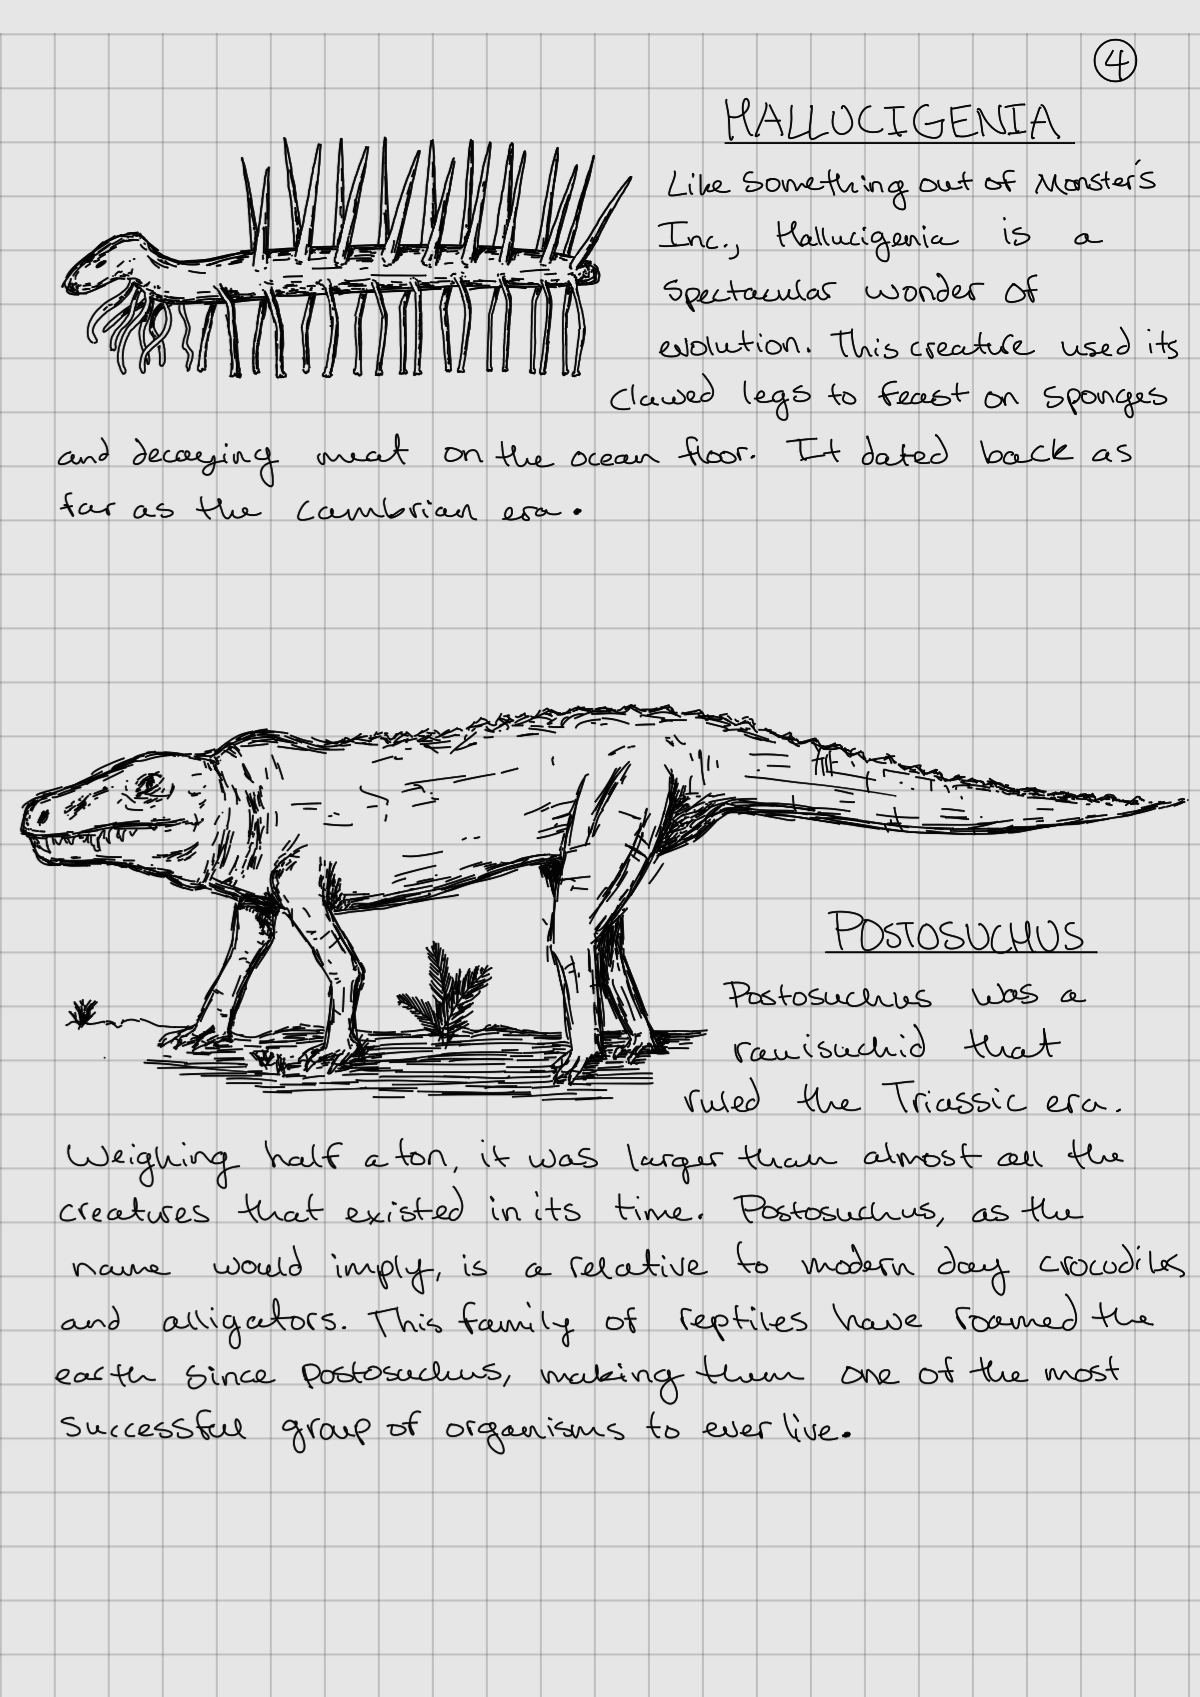 4
HALLUCIGENIA
Like something out of Monster's
Inc., Hallucigenia is a
spectacular wonder of
evolution. This creature used its
clawed legs to feast on sponges
and decaying meat on the ocean floor. It dated back as
far as the Cambrian era.
POSTOSUCHUS
Postosuchus was a
rauisuchid that
ruled the Triassic era.
Weighing half a ton, it was larger than almost all the
creatures that existed in its time. Postosuchus, as the
name would imply, is a relative to modern day crocodiles
and alligators. This family of reptiles have roamed the
earth since Postosuchus, making them one of the most
successful group of organisms to ever live.